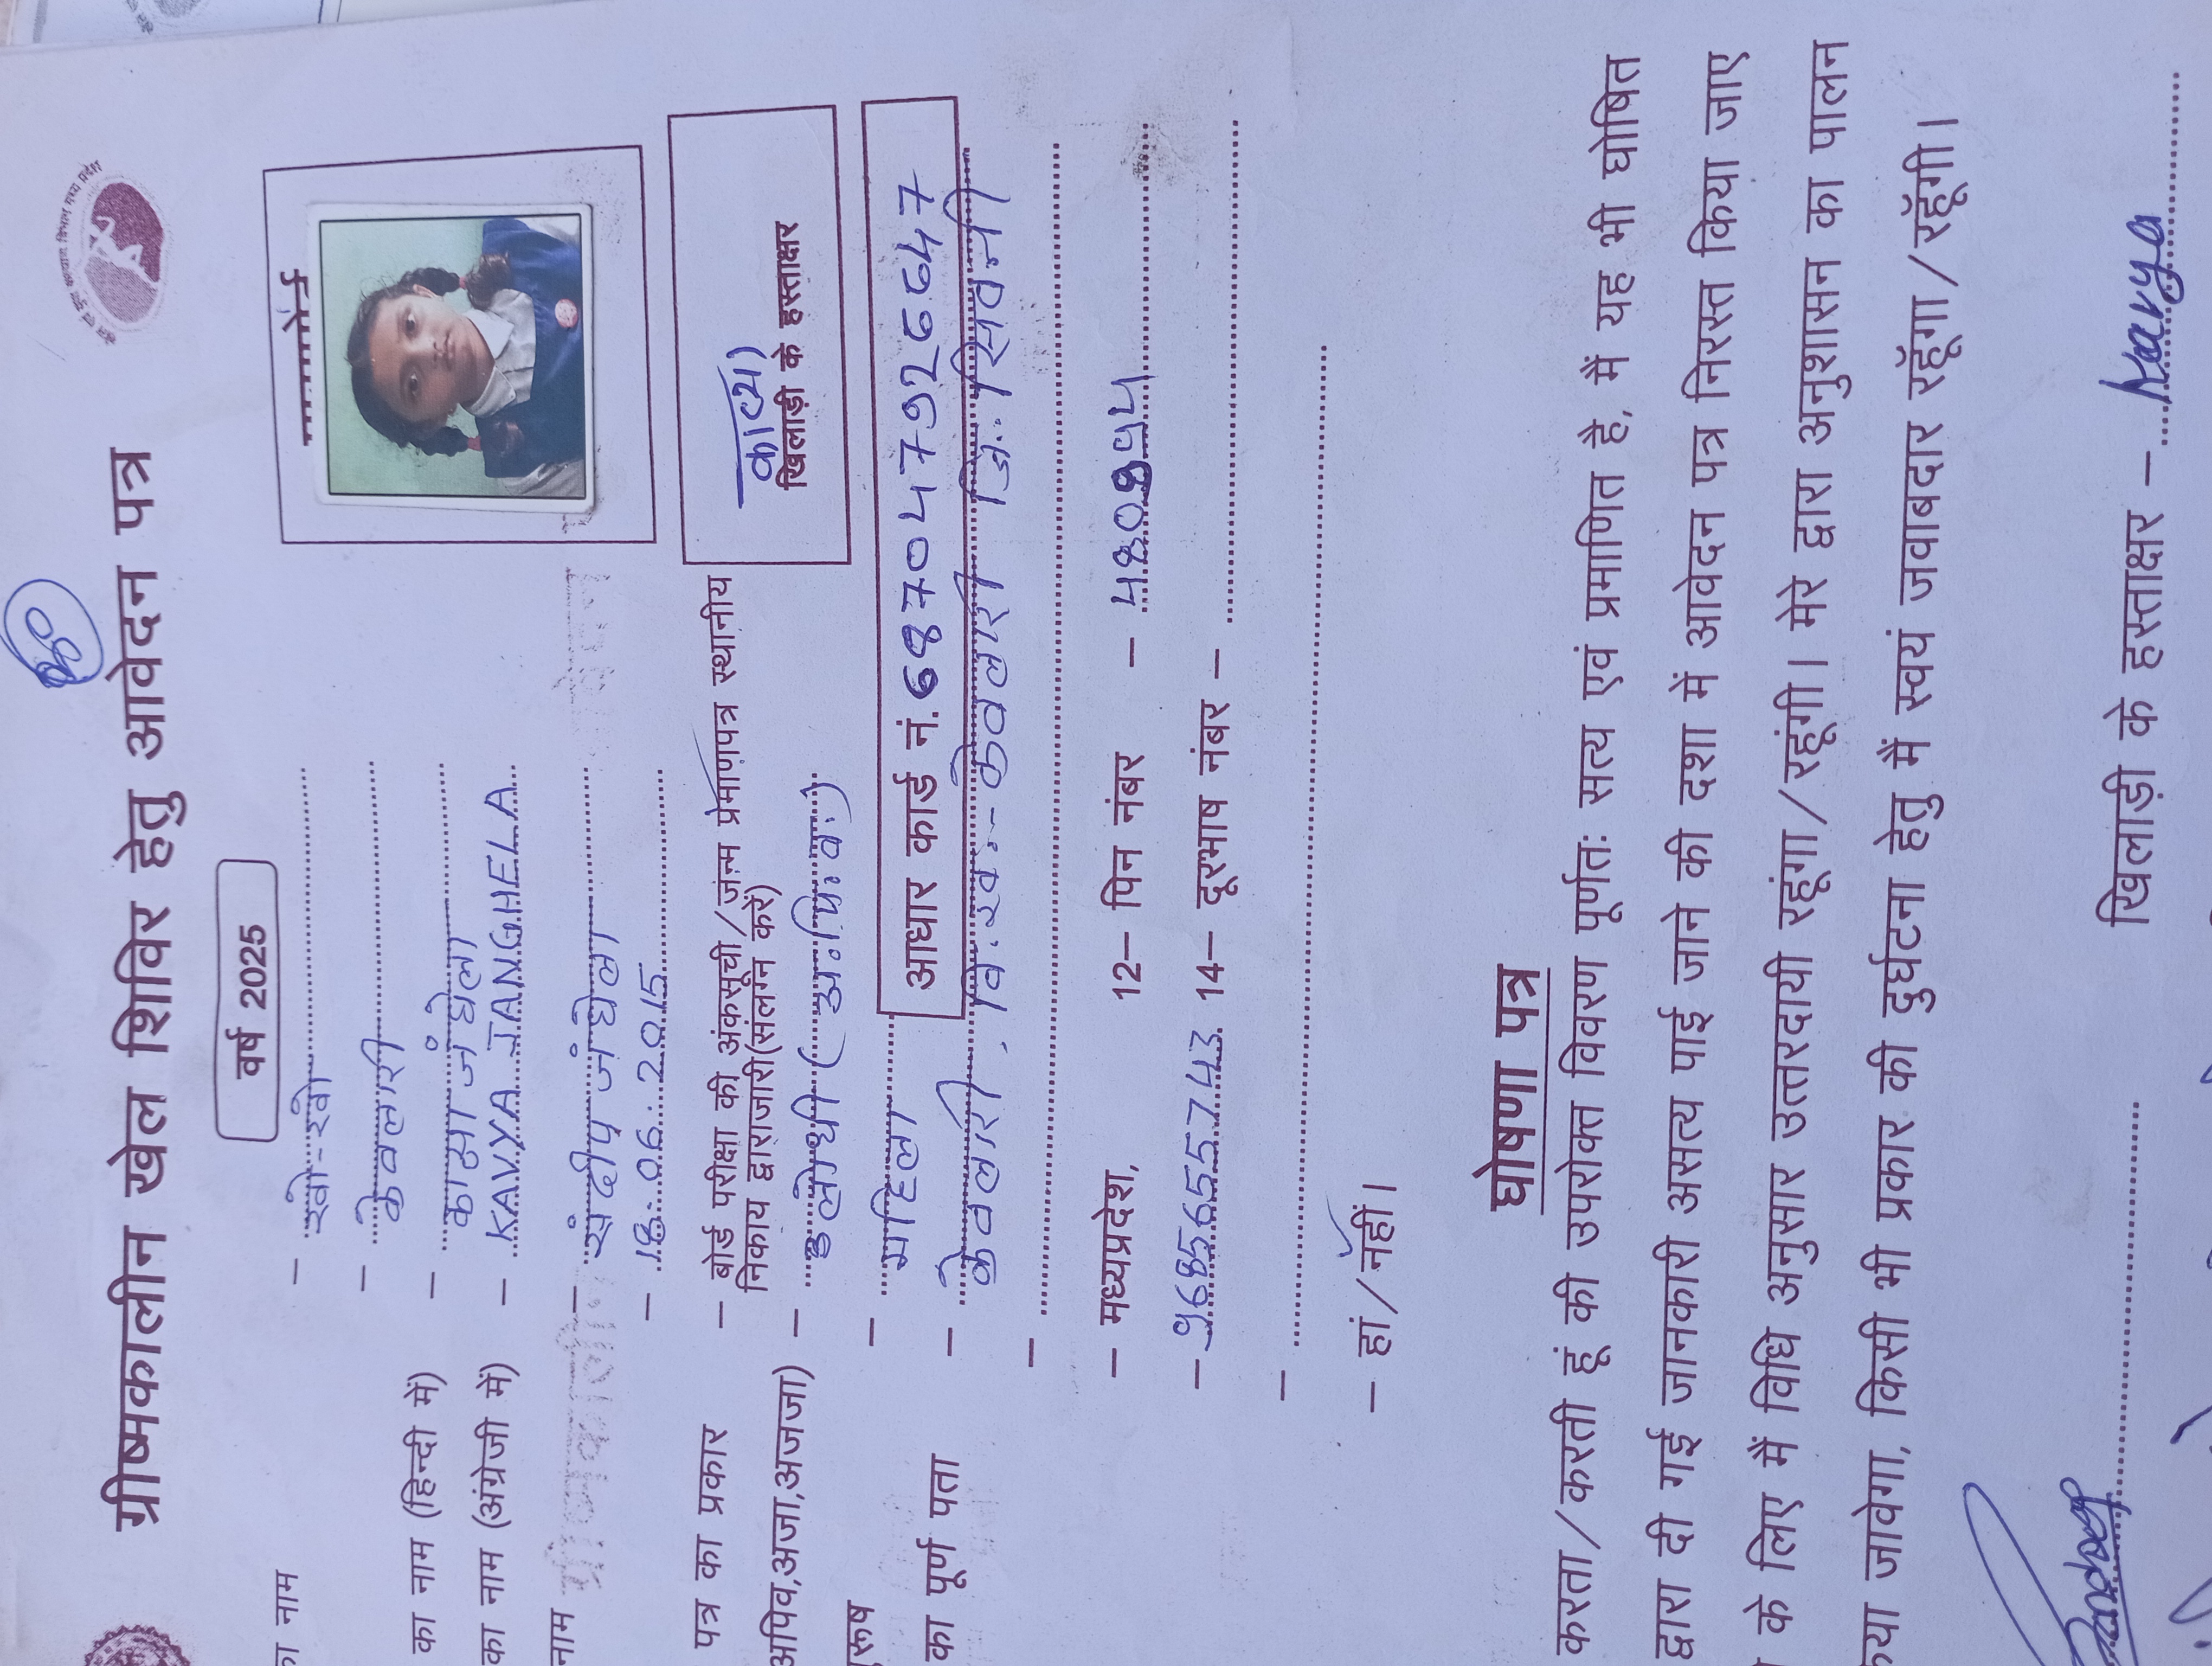 खेल एवं युवा कल्याण विभाग मध्य प्रदेश
ग्रीष्मकालीन खेल शिविर हेतु आवेदन पत्र
वर्ष 2025
का नाम - खो-खो
- केवलारी
का नाम (हिन्दी में) - काव्या जंघेला
का नाम (अंग्रेजी में) - KAVYA JANGHELA
नाम - संदीप जंघेला
- 18.06.2015
पत्र का प्रकार - बोर्ड परीक्षा की अंकसूची/जन्म प्रमाणपत्र स्थानीय
निकाय द्वाराजारी(संलग्न करें)
काव्या
खिलाड़ी के हस्ताक्षर
अपिव,अजा,अजजा) - (अ.पि.व.)
रूष - महिला
आधार कार्ड नं. 687047926647
का पूर्ण पता - केवलारी वि.ख.-केवलारी जि. सिवनी
- मध्यप्रदेश, 12- पिन नंबर - 480994
- 9685655743 14- दूरभाष नंबर -
- हां/नहीं।
घोषणा पत्र
करता/करती हूं की उपरोक्त विवरण पूर्णतः सत्य एवं प्रमाणित है, मैं यह भी घोषित
द्वारा दी गई जानकारी असत्य पाई जाने की दशा में आवेदन पत्र निरस्त किया जाए
के लिए मैं विधि अनुसार उत्तरदायी रहूंगा/रहूंगी। मेरे द्वारा अनुशासन का पालन
किया जावेगा, किसी भी प्रकार की दुर्घटना हेतु मैं स्वयं जवाबदार रहूँगा/रहूँगी।
खिलाड़ी के हस्ताक्षर - Kavya